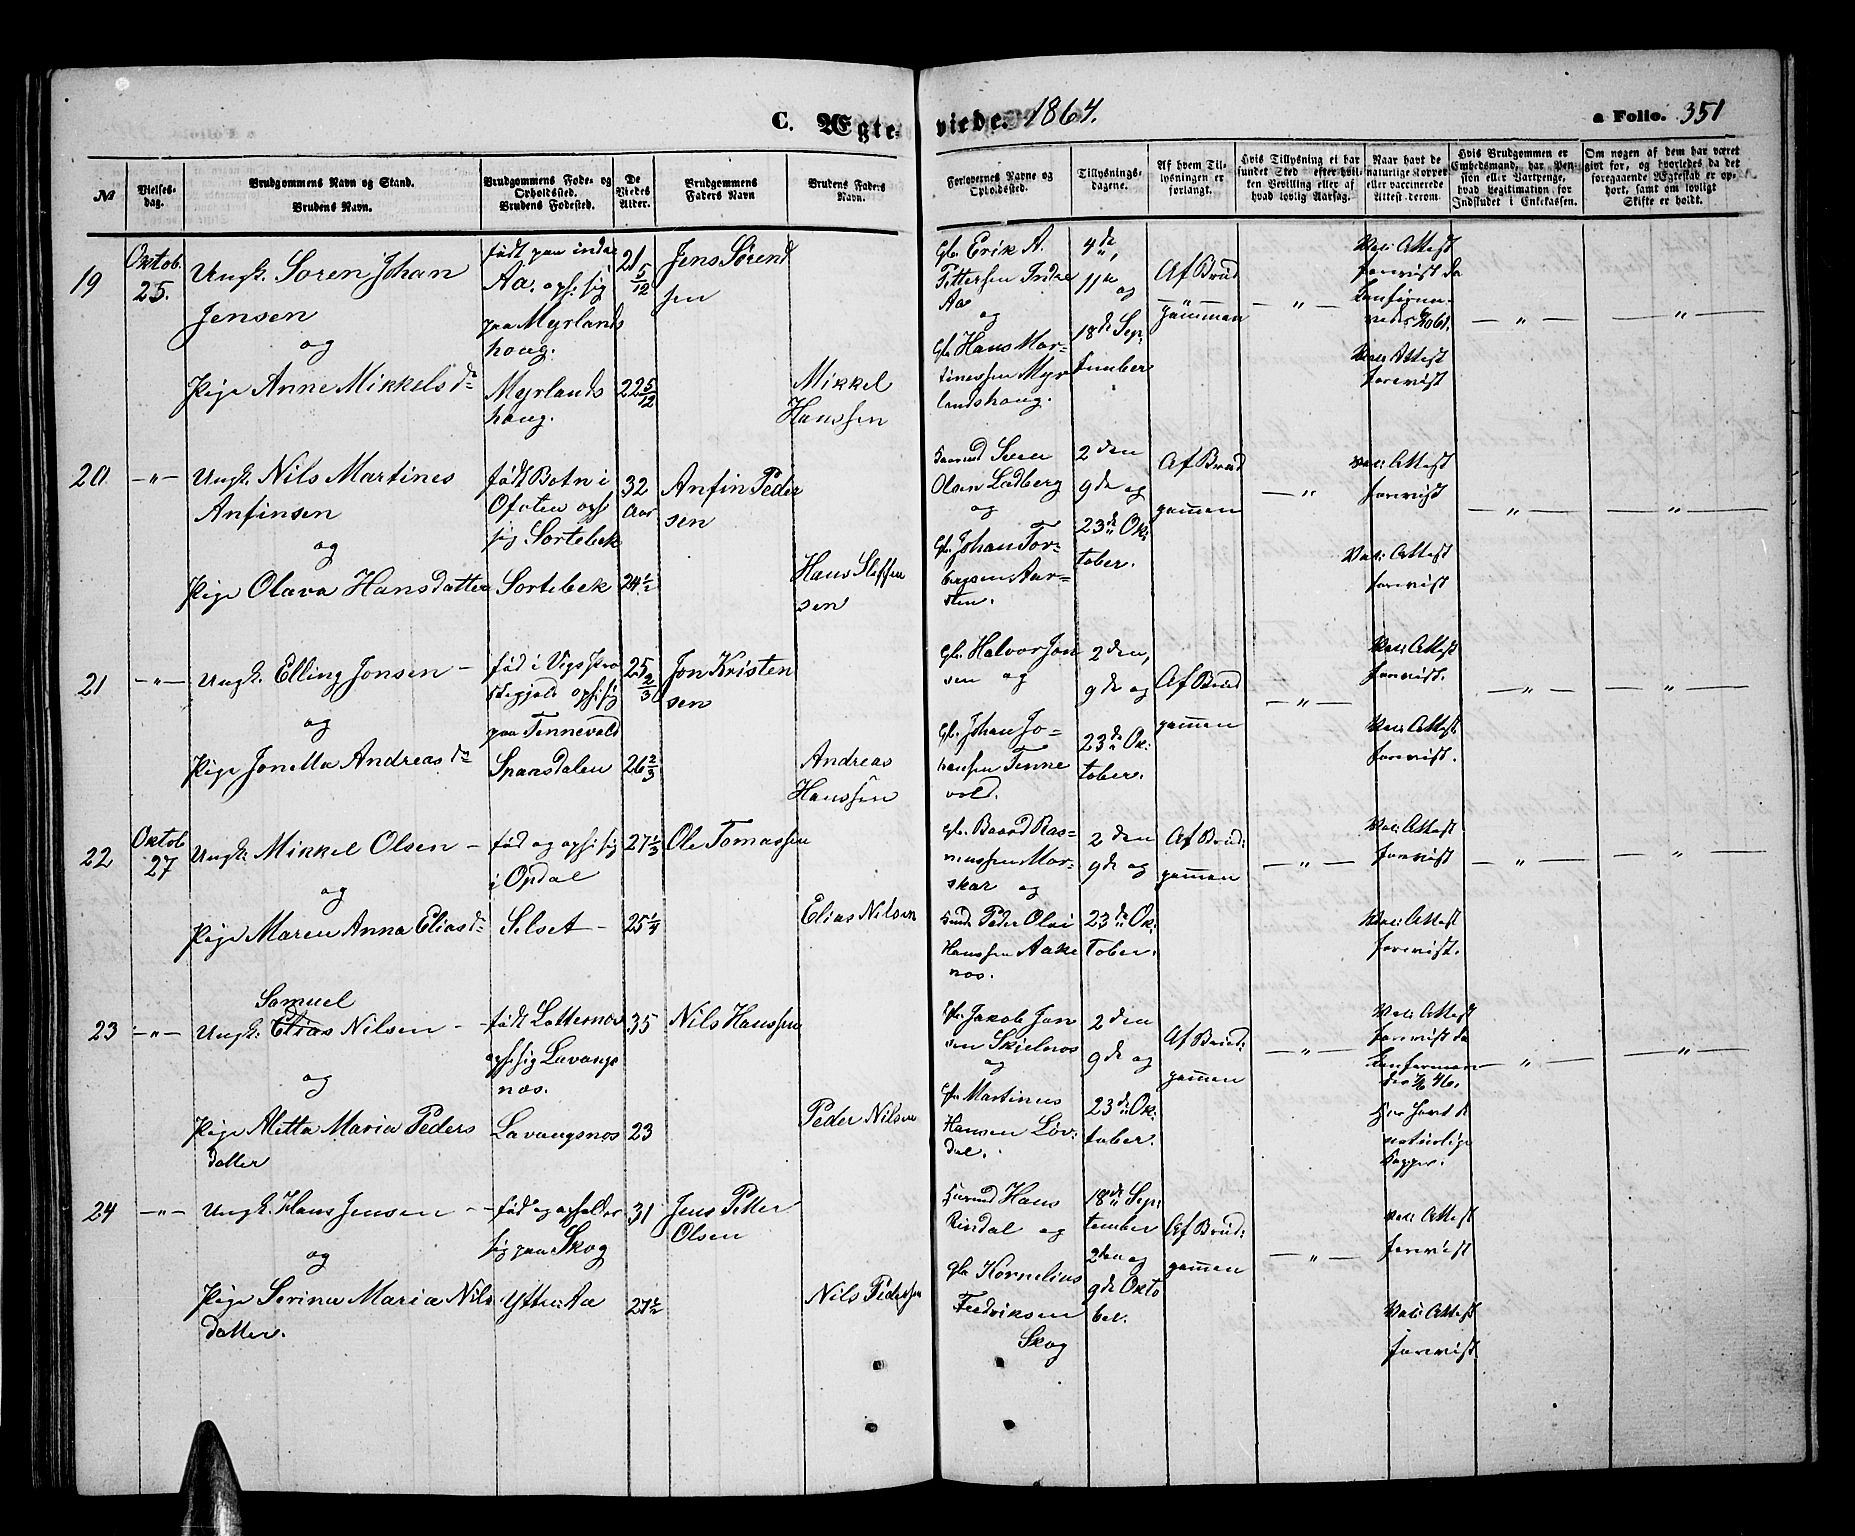 C. Ægte-viede. 1864. a Folio. 351
№
Vielses-
dag.
Brudgommens Navn og Stand.
Brudens Navn.
Brudgommens Føde- og
Opholdssted.
Brudens Fødested.
De
Viedes
Alder.
Brudgommens
Faders Navn
Brudens Faders
Navn.
Forlovernes Navne og
Opholdssted.
Tillysnings-
dagene.
Af hvem Til-
lysningen er
forlangt.
Hvis Tillysning ei har
fundet Sted efter hvil-
ken Bevilling eller af
hvad lovlig Aarsag.
Naar havt de
naturlige Kopper
eller vaccinerede
Attest derom.
Hvis Brudgommen er
Embedsmand, har Pen-
sion eller Vartpenge,
hvad Legitimation for
Indskudet i Enkekassen.
Om nogen af dem har været
givt før, og hvorledes da det
foregaaende Ægteskab er op-
hørt, samt om lovligt
Skifte er holdt.
19
Oktob.
25.
Ungk. Soren Johan
Jensen
og
Pige Anne Mikkelsdr
født paa indre
Aa. ops. sig
paa Myrlands
houg.
Myrlands
houg.
21 5/12
22 5/12
Jens Sørend
sen
Mikkel
Hanssen
Gb. Erik A.
Pettersen Indre
Aa
og
Gb. Hans Mar-
tinessen Myr
landshoug.
4de,
11te og
18de Sep-
tember
Af Brud
gammen
— " —
Vac: Attest
forevist da
Konfirme-
redes
Vac: Attest
forevist
— " —
— " —
20
— " —
Ungk. Nils Martines
Anfinsen
og
Pige Olava Hansdatter
født Botn i
Ofoten ops
sig Sortebek
Sortebek
32
Aar
24 1/2
Anfin Peder
sen
Hans Steffen
sen
Olsen Ladberg
og
Gb. Johan Tor-
bergsen Aar-
sten.
2den
9de og
23de Ok-
tober.
Af Brud
gammen
— " —
Vac: Attest
forevist
Vac: Attest
forevist
— " —
— " —
21
— " —
Ungk. Elling Jonsen —
og
Pige Jonetta Andreasdr
fød i Vigs Pre
stegjeld ops. sig
paa Tennevold
Spansdalen
25 2/3
26 2/3
Jon Kristen
sen
Andreas
Hanssen
Gb. Halvor Jon
sen og
Gb. Johan Jo-
hansen Tenne
vold.
2den,
9de og
23de Ok-
tober.
Af Brud
gammen
— " —
Vac: Attest
forevist.
Vac: Attest
forevist.
— " —
— " —
22
Oktob
27
Ungk. Mikkel Olsen —
og
Pige Maren Anna Eliasdr
fød og ops. sig
i Opdal
Selset —
27 1/3
25 1/4
Ole Tomassen
Elias Nilsen
Gb. Baard Ras-
mussen Mor-
skar og
Peder Olai
Hanssen Aake
nos.
2den
9de og
23de Ok-
tober.
Af Brud-
gammen
— " —
Vac: Attest
forevist
Vac: Attest
forevist.
— " —
— " —
23
— " —
Samuel
Ungk. Elias Nilsen —
og
Pige Aletta Maria Peders
datter
født Lotternos
ops. sig Lavangs
nos.
Lavangsnos
35
23
Nils Hanssen
Peder Nilsen
Jakob Jon
sen Skjelnos
og
Martinus
Hansen Løv-
dal.
2den
9de og
23de Ok-
tober.
Af Brud-
gammen
— " —
Vac: Attest
forevist da
Konferman-
Har havt de
naturlige
Kopper.
— " —
— " —
24
— " —
Ungk. Hans Jensen —
og
Pige Serina Maria Nils
datter.
fød og opholder
sig paa Skog
Ytter Aa
31
27 1/2
Jens Petter
Olsen
Nils Pedersen
Hans
Rindal og
Gb. Kornelius
Fredriksen
Skog
18de Sep-
tember
2den og
9de Okto
ber.
Af Brud-
gammen
— " —
Vac: Attest
forevist
Vac: Attest
forevist.